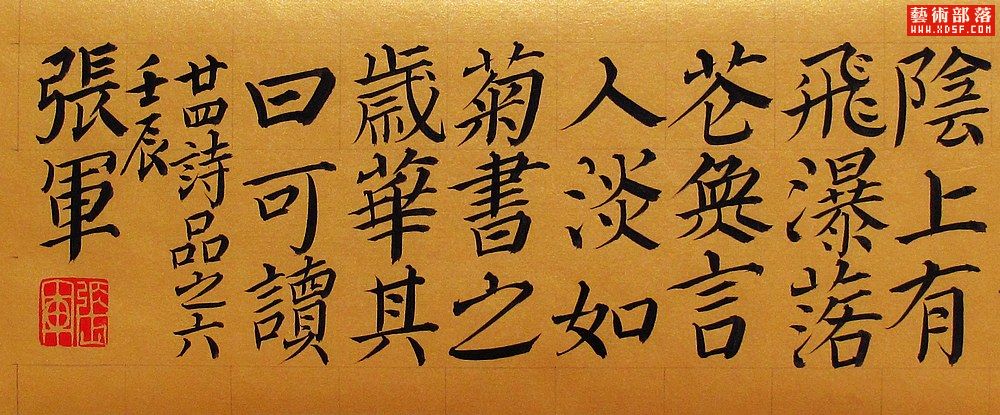 陰上有
飛瀑落
苍無言
人淡如
菊書之
歲華其
曰可讀
廿四詩品之六
壬辰
張軍
張軍
藝術部落
WWW.XDSF.COM